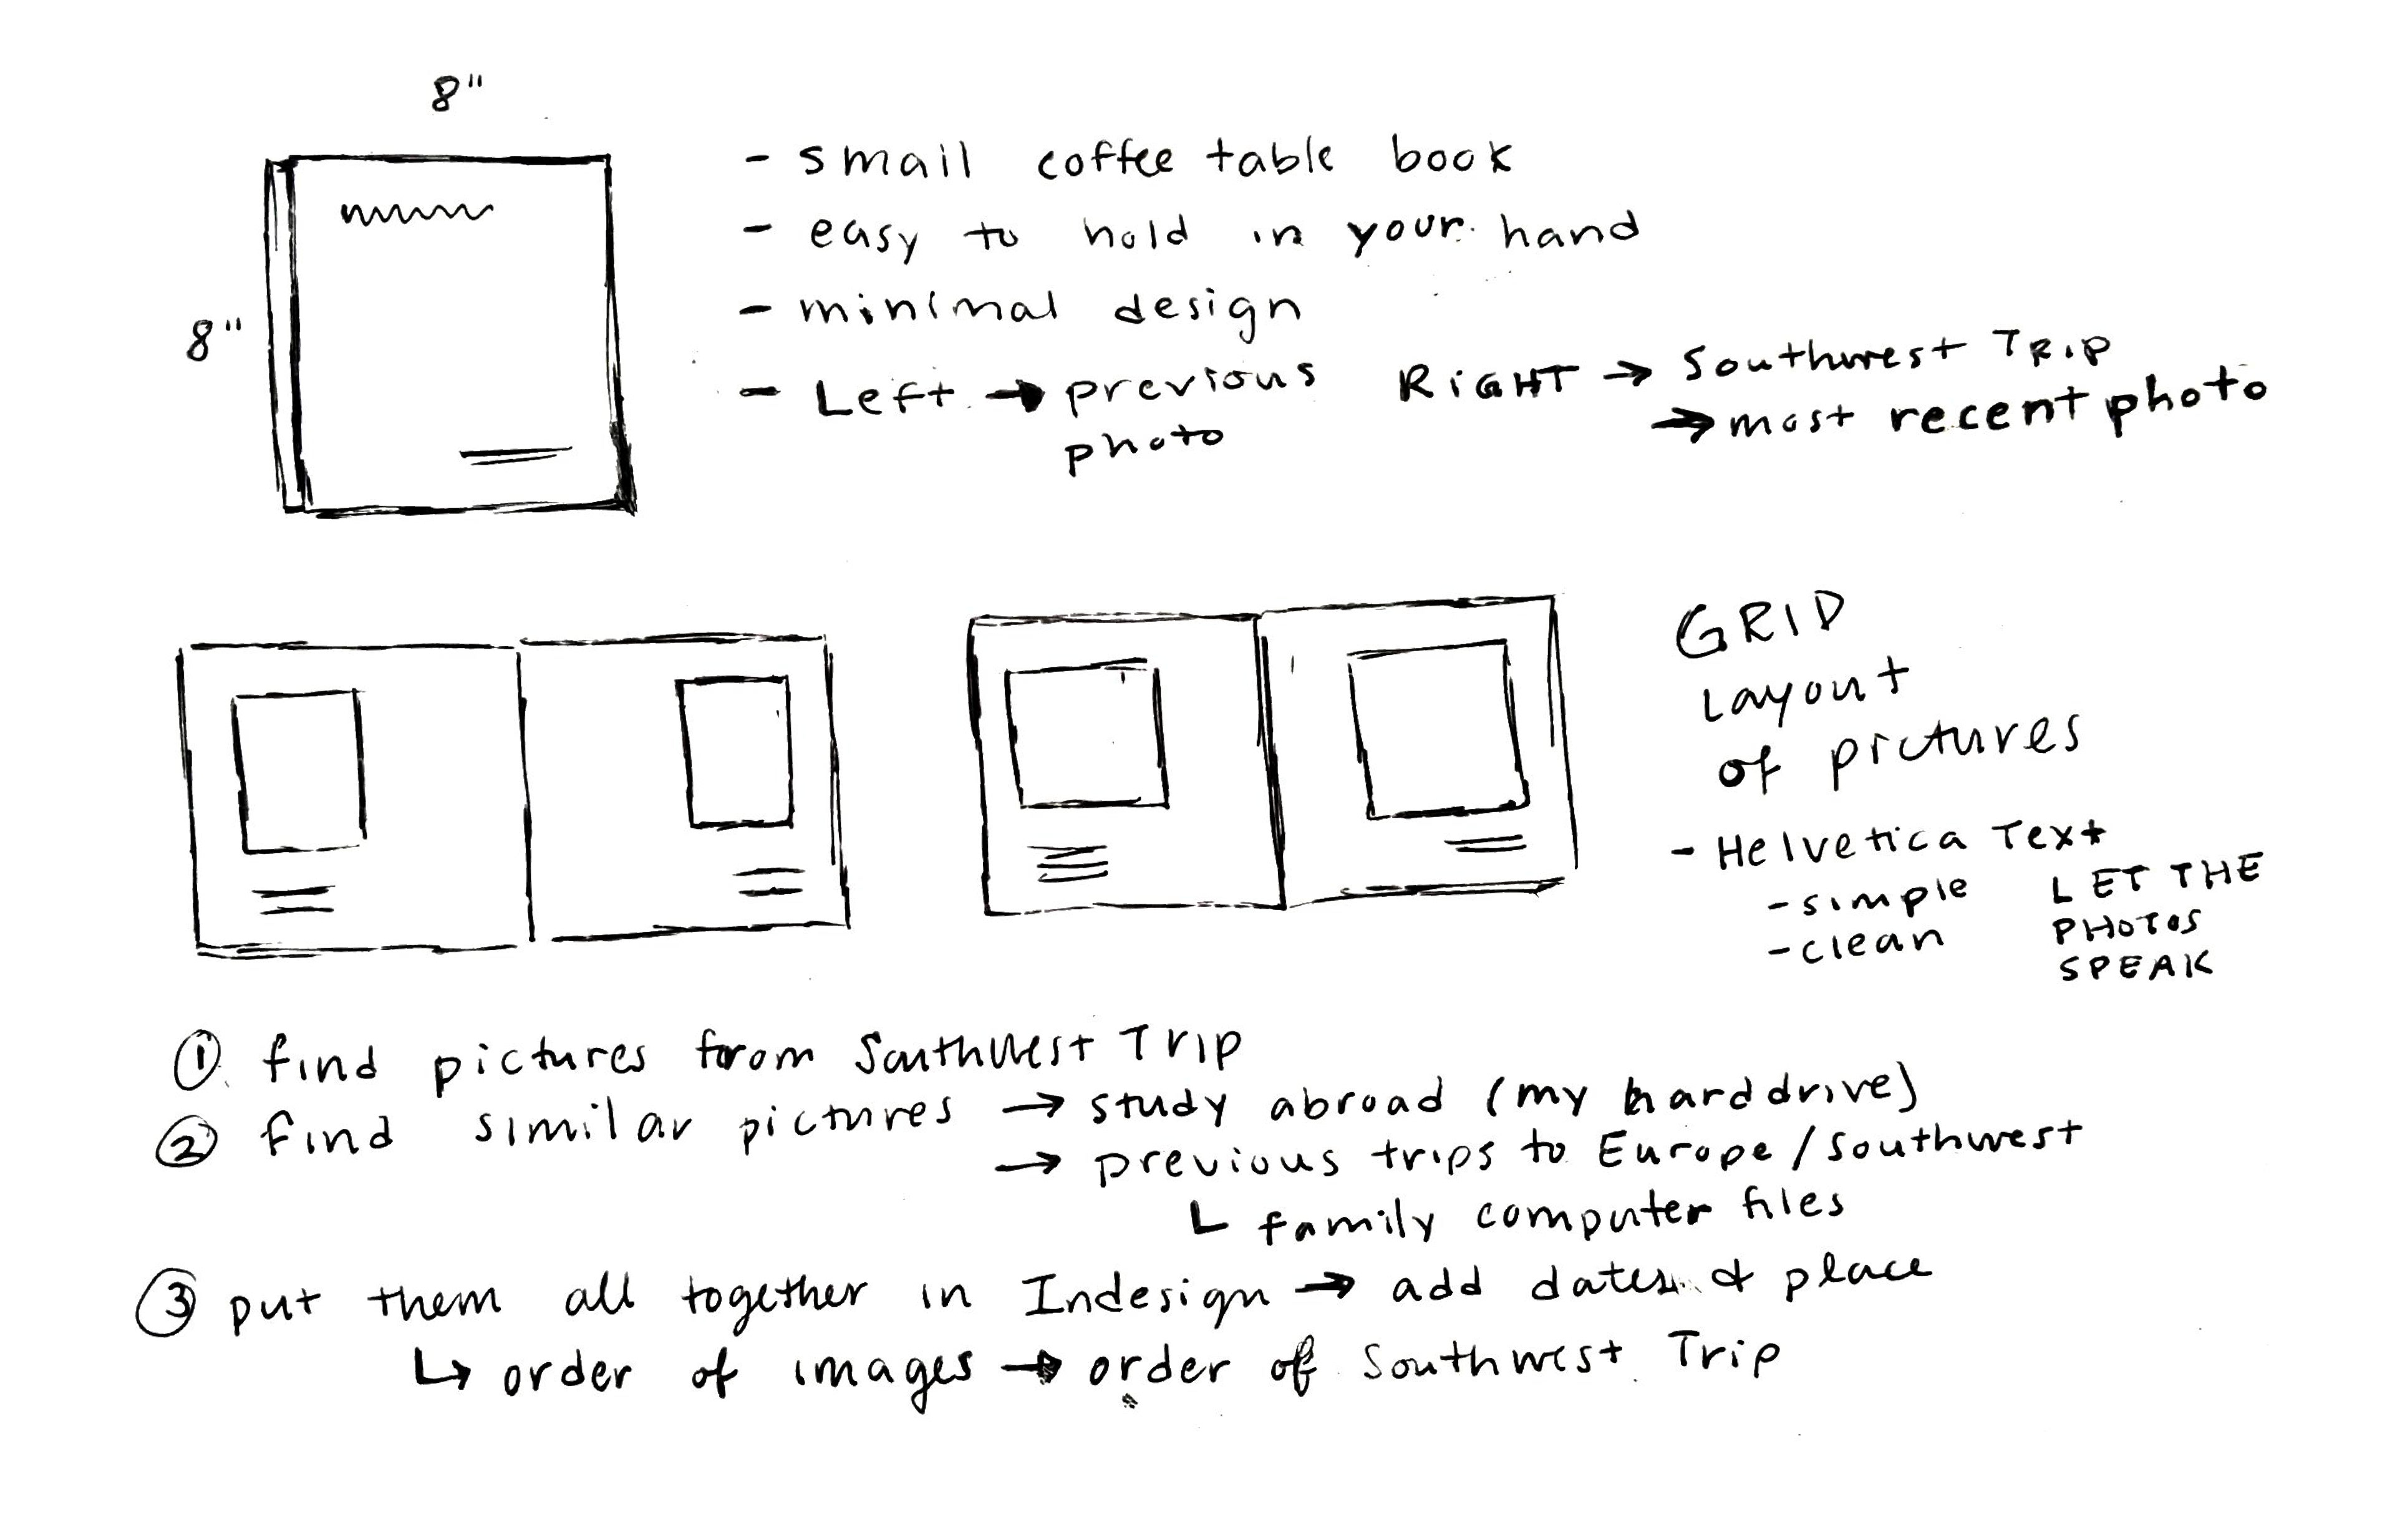 8"
8"
- small coffee table book
- easy to hold in your hand
- minimal design
- Left → previous photo
RIGHT → Southwest TRIP
→ most recent photo
GRID
Layout
of pictures
- Helvetica Text
- simple
- clean
LET THE
PHOTOS
SPEAK
① find pictures from Southwest Trip
② find similar pictures → study abroad (my harddrive)
→ previous trips to Europe/Southwest
L family computer files
③ put them all together in Indesign → add dates & place
↳ order of images → order of Southwest Trip